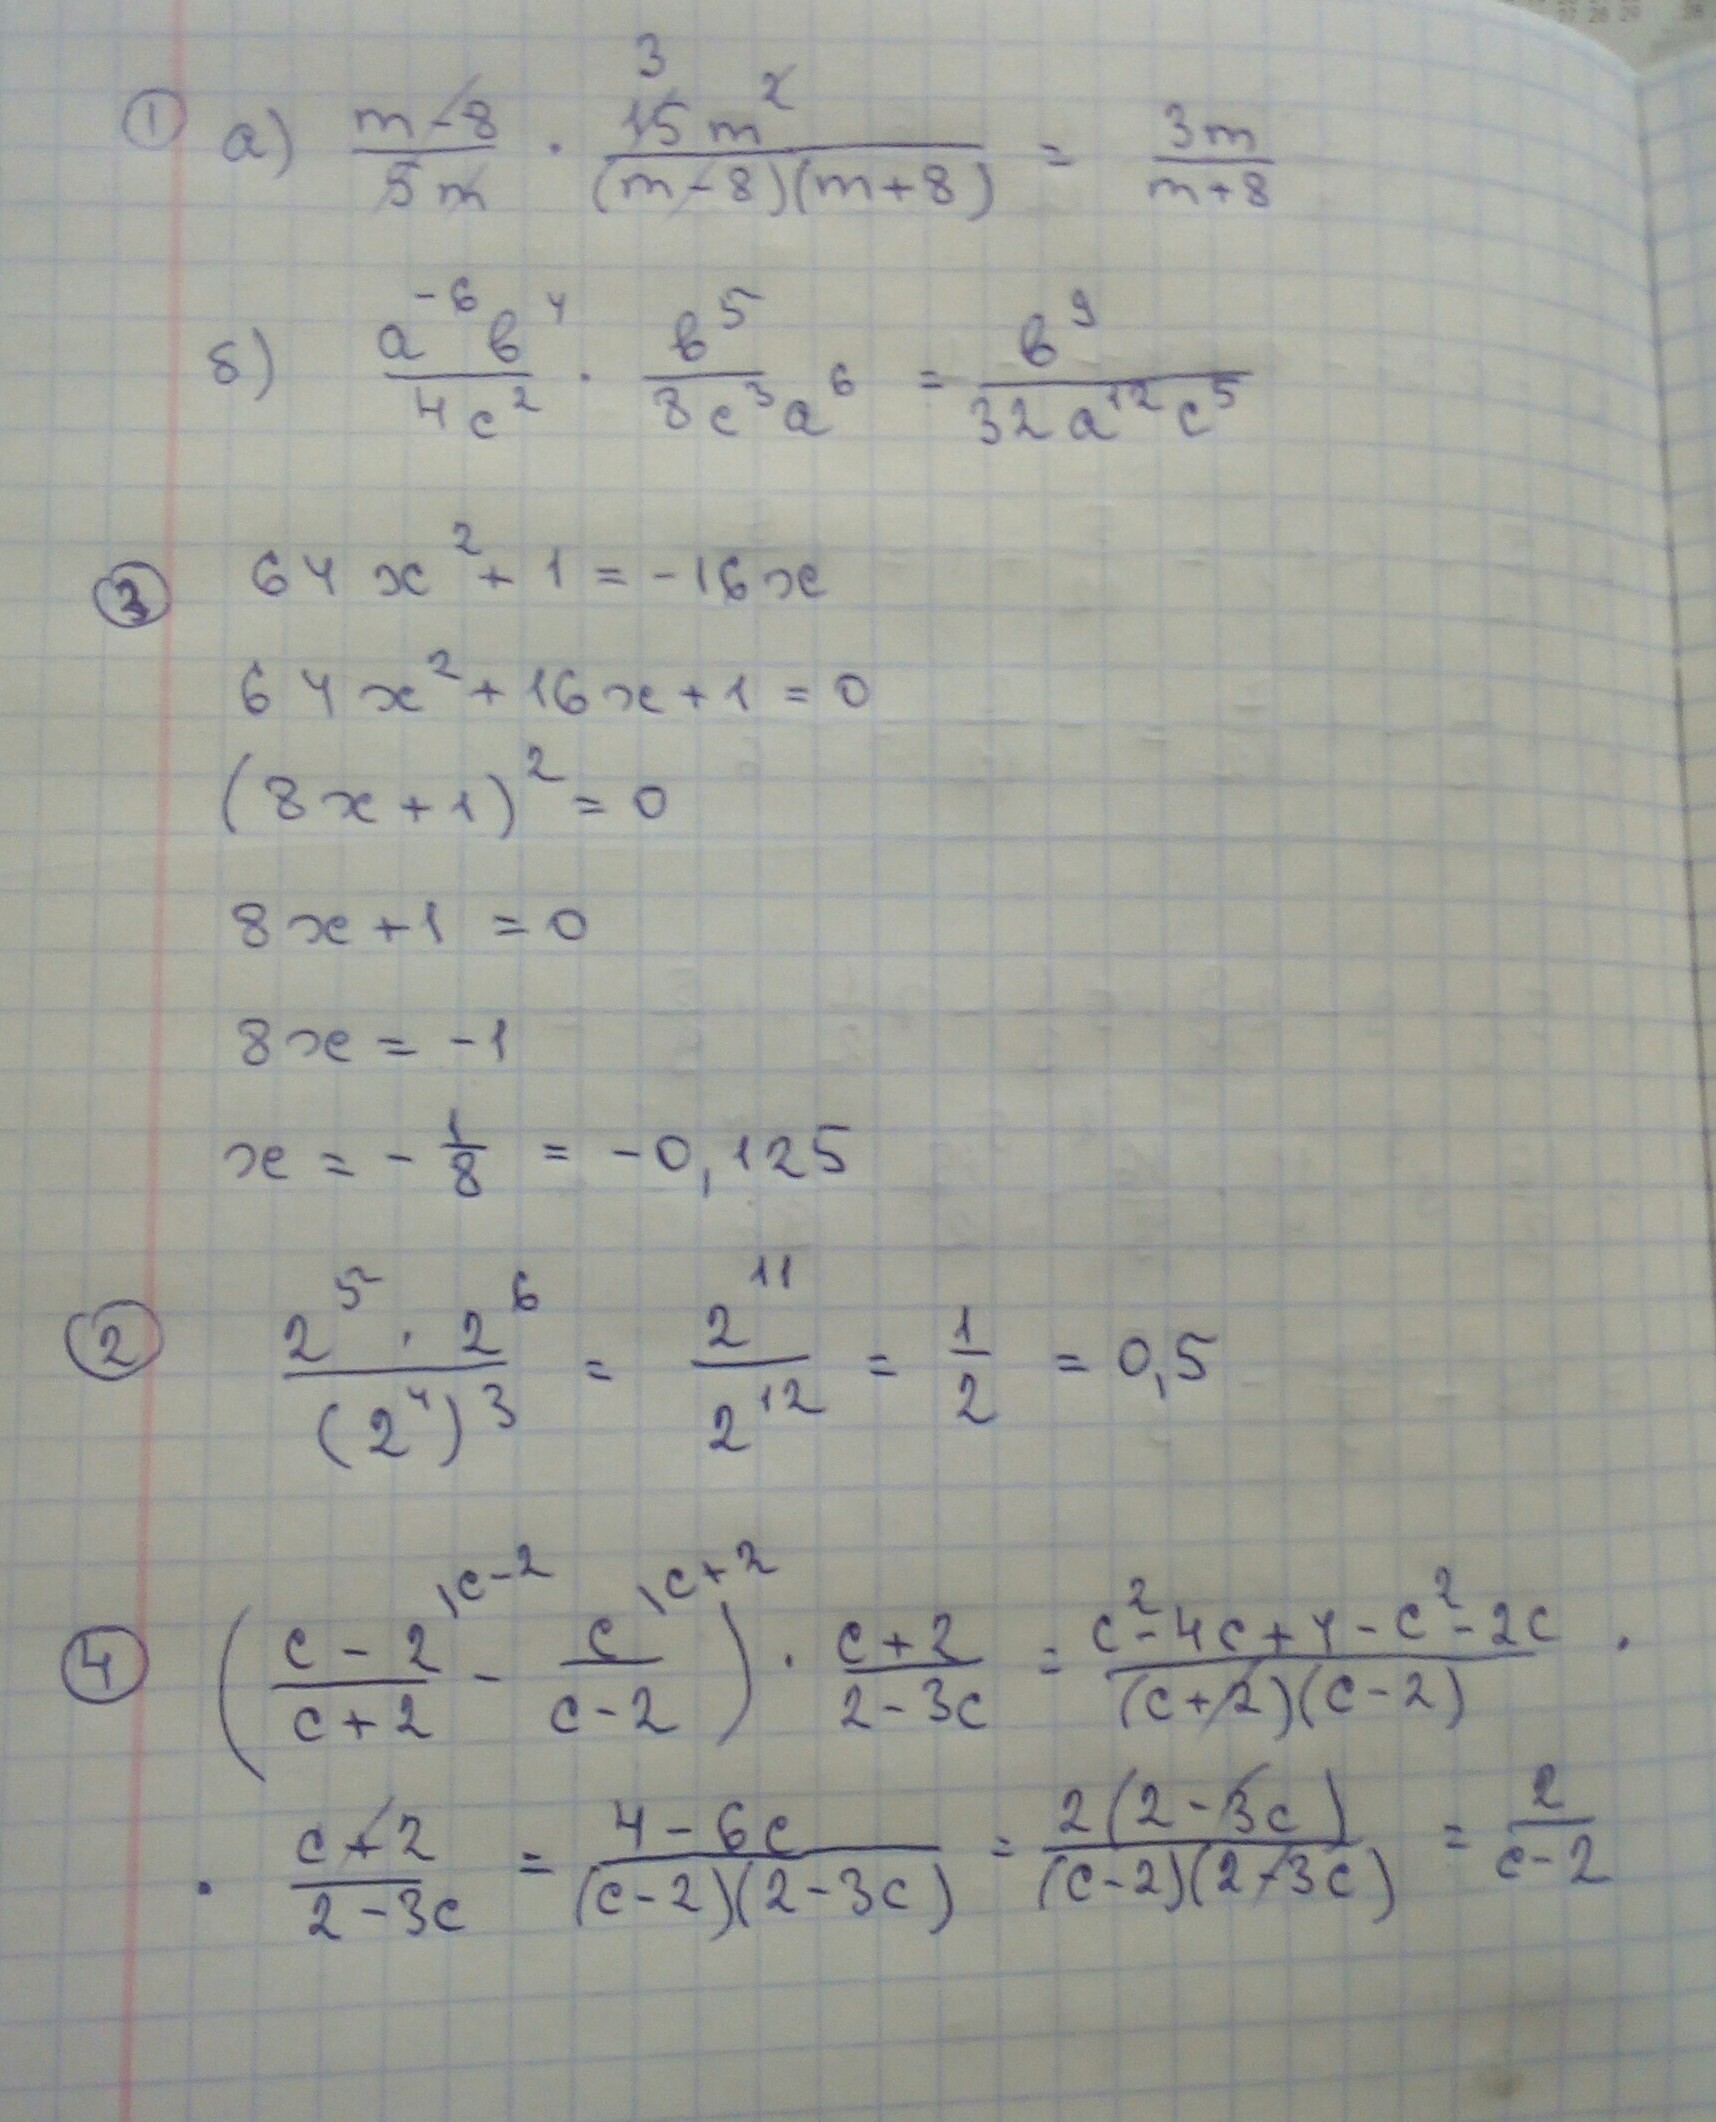 ① а) \frac{m-8}{5m} · \frac{\overset{3}{15}m^2}{(m-8)(m+8)} = \frac{3m}{m+8}
б) \frac{a^{-6}b^4}{4c^2} · \frac{b^5}{8c^3a^6} = \frac{b^9}{32a^{12}c^5}
③ 64x^2+1=-16x
64x^2+16x+1=0
(8x+1)^2=0
8x+1=0
8x=-1
x=-\frac{1}{8}=-0,125
② \frac{2^5·2^6}{(2^4)^3} = \frac{2^{11}}{2^{12}} = \frac{1}{2} = 0,5
④ (\frac{c-2}{c+2}^{\c-2} - \frac{c}{c-2}^{\c+2}) · \frac{c+2}{2-3c} = \frac{c^2-4c+4-c^2-2c}{(c+2)(c-2)} ·
· \frac{c+2}{2-3c} = \frac{4-6c}{(c-2)(2-3c)} = \frac{2(2-3c)}{(c-2)(2-3c)} = \frac{2}{c-2}